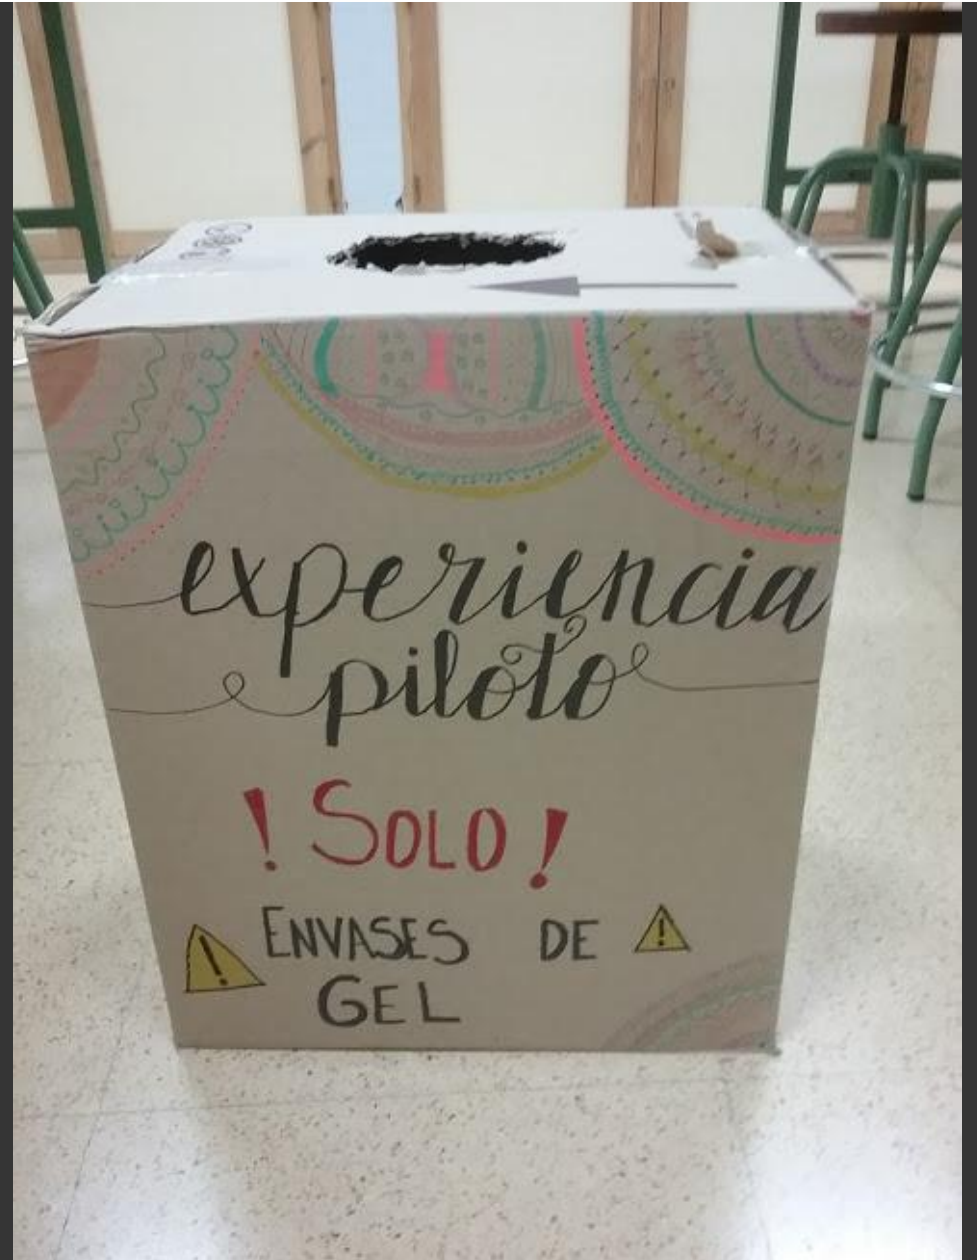 experiencia
piloto
! SOLO !
ENVASES DE
GEL